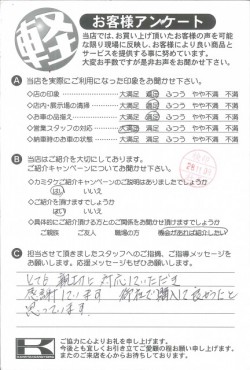 軽
お客様アンケート
当店では、お買い上げ頂いたお客様の声を可能
な限り現場に反映し、お客様により良い商品と
サービスを提供する事に努めています。
大変お手数ですが是非お声をお聞かせ下さい。
A 当店を実際にご利用になった印象をお聞かせ下さい。
◇店の印象 大満足 満足 ふつう やや不満 不満
◇店内・展示場の清掃 大満足 満足 ふつう やや不満 不満
◇お車の品揃え 大満足 満足 ふつう やや不満 不満
◇営業スタッフの対応 大満足 満足 ふつう やや不満 不満
◇納車時のお車の状態 大満足 満足 ふつう やや不満 不満
B 当店はご紹介を大切にしております。
ご紹介キャンペーンについてお聞かせ下さい
◇カミタケご紹介キャンペーンのご説明はありましたでしょうか
はい いいえ
◇ご紹介を頂けますでしょうか
はい いいえ
◇具体的にご紹介頂ける方とのご関係をお聞かせ頂けますでしょうか
ご親族 ご友人 職場の方 機会があれば紹介したい
C 担当させて頂きましたスタッフへのご指摘、ご指導メッセージを
お願いします。応援メッセージもぜひお願いします。
とても親切に対応していただき
感謝しています
思っています。
K
ご協力に心よりお礼を申し上げます。
今後とも宜しくお引き立てご愛顧の程お願い申し上げます。
またのご来店を心からお待ちしております。